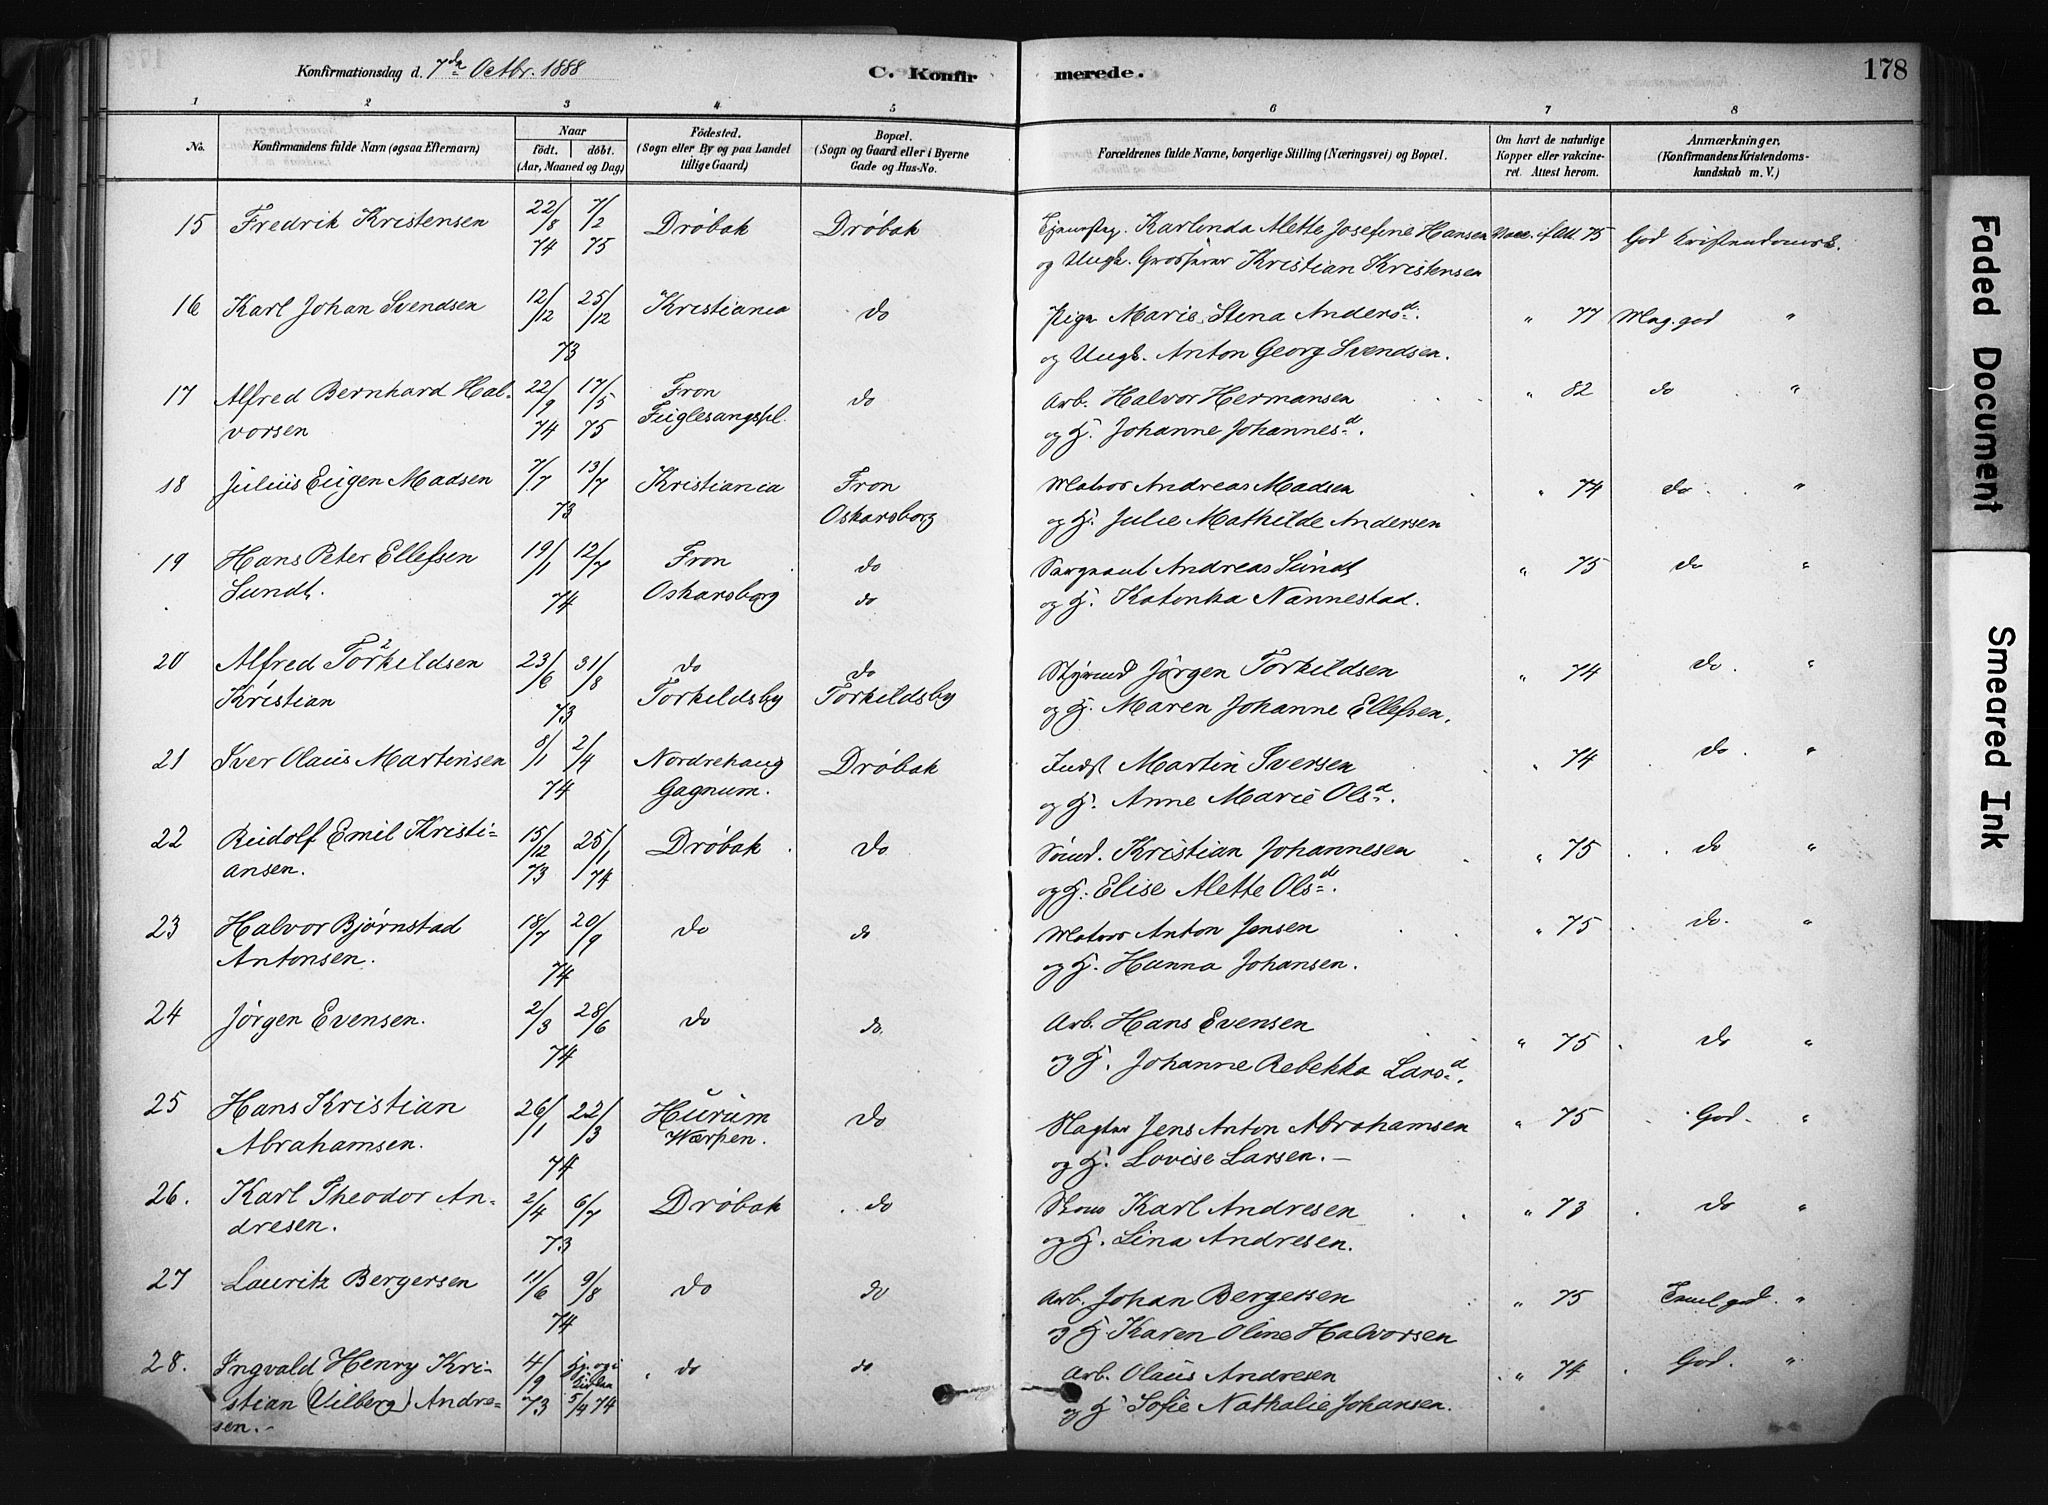 Konfirmationsdag d. 7de Octbr. 1888
C. Konfirmerede.
178
1 2 3 4 5 6 7 8
No.
Konfirmandens fulde Navn (ogsaa Efternavn)
Naar
Födt. döbt.
(Aar, Maaned og Dag)
Födested.
(Sogn eller By og paa Landet
tillige Gaard)
Bopæl.
(Sogn og Gaard eller i Byerne
Gade og Hus-No.
Forældrenes fulde Navne, borgerlige Stilling (Næringsvei) og Bopæl.
Om havt de naturlige
Kopper eller vakcine-
ret. Attest herom.
Anmærkninger.
(Konfirmandens Kristendoms-
kundskab m. V.)
15 Fredrik Kristensen 22/8 74 7/2 75 Dröbak Dröbak Karlinda Alette Josefine Hansen 75 God Kristendomsk.
og Ungk. Kristian Kristensen
16 Karl Johan Svendsen 12/12 25/12 73 Kristiania do Pige Marie Stena Andersd. " 77 Meg. god "
og Ungk. Anton Georg Svendsen.
17 Alfred Bernhard Hal- 22/9 74 17/5 75 Fron do Arb. Halvor Hermansen " 82 do "
vorsen Fuglesangspl. og H. Johanne Johannesd.
18 Julius Eugen Madsen 7/7 13/7 73 Kristiania Fron Matros Andreas Madsen " 74 do "
Oskarsborg og H. Julie Mathilde Andersen
19 Hans Peter Ellefsen 19/1 12/7 74 Fron do Sargeant Andreas Sundt " 75 do "
Sundt. Oskarsborg do og H. Katonka Nannestad.
20 Alfred Torkildsen 2 23/6 31/8 73 do do Styrmd Jörgen Torkildsen " 74 do "
Kristian 1 Torkildsby Torkildsby og H. Maren Johanne Ellefsen.
21 Iver Olaus Martinsen 8/1 2/4 74 Nordrehaug Dröbak Indst Martin Iversen " 74 do "
Gagnum. og H. Anne Marie Olsd.
22 Rudolf Emil Kristi- 15/12 73 25/1 74 Dröbak do Sömd. Kristian Johannesen " 75 do "
ansen. og H. Elise Alette Olsd.
23 Halvor Bjørnstad 18/7 20/9 74 do do Matros Anton Jensen " 75 do "
Antonsen. og H. Hanna Johansen.
24 Jørgen Evensen. 2/3 28/6 74 do do Arb. Hans Evensen " 75 do "
og H. Johanne Rebekka Larsd.
25 Hans Kristian 26/1 22/3 74 Hurum do Jens Anton Abrahamsen " 75 God "
Abrahamsen. Wærpen. og H. Lovise Larsen. —
26. Karl Theodor An- 2/4 6/7 73 Dröbak do Karl Andresen " 73 do "
dresen. og H. Lina Andresen.
27 Lauritz Bergersen 11/6 9/8 74 do do Arb. Johan Bergersen " 75 god "
og H Karen Oline Halvorsen
28. Ingvald Henry Kri- 4/9 73 5/4 74 do do Arb. Olaus Andresen " 74 God "
stian (Vilberg) Andre- og H Sofie Nathalie Johansen.
sen.
Faded Document
Smeared Ink